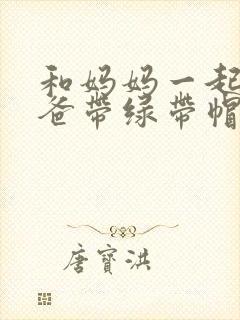 和妈妈一起
爸带绿带帽
唐寳洪